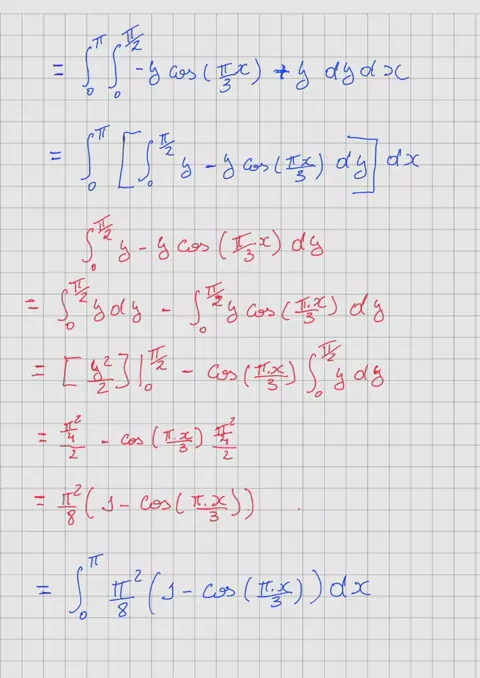 = ∫₀^π ∫₀^(π/2) -y cos(πx/3) + y dy dx
= ∫₀^π [∫₀^(π/2) y - y cos(πx/3) dy] dx
∫₀^(π/2) y - y cos(π/3·x) dy
= ∫₀^(π/2) y dy - ∫₀^(π/2) y cos(π·x/3) dy
= [y²/2]|₀^(π/2) - cos(π·x/3) ∫₀^(π/2) y dy
= (π²/4)/2 - cos(π·x/3) (π²/4)/2
= π²/8 (1 - cos(π·x/3))
= ∫₀^π π²/8 (1 - cos(π·x/3)) dx